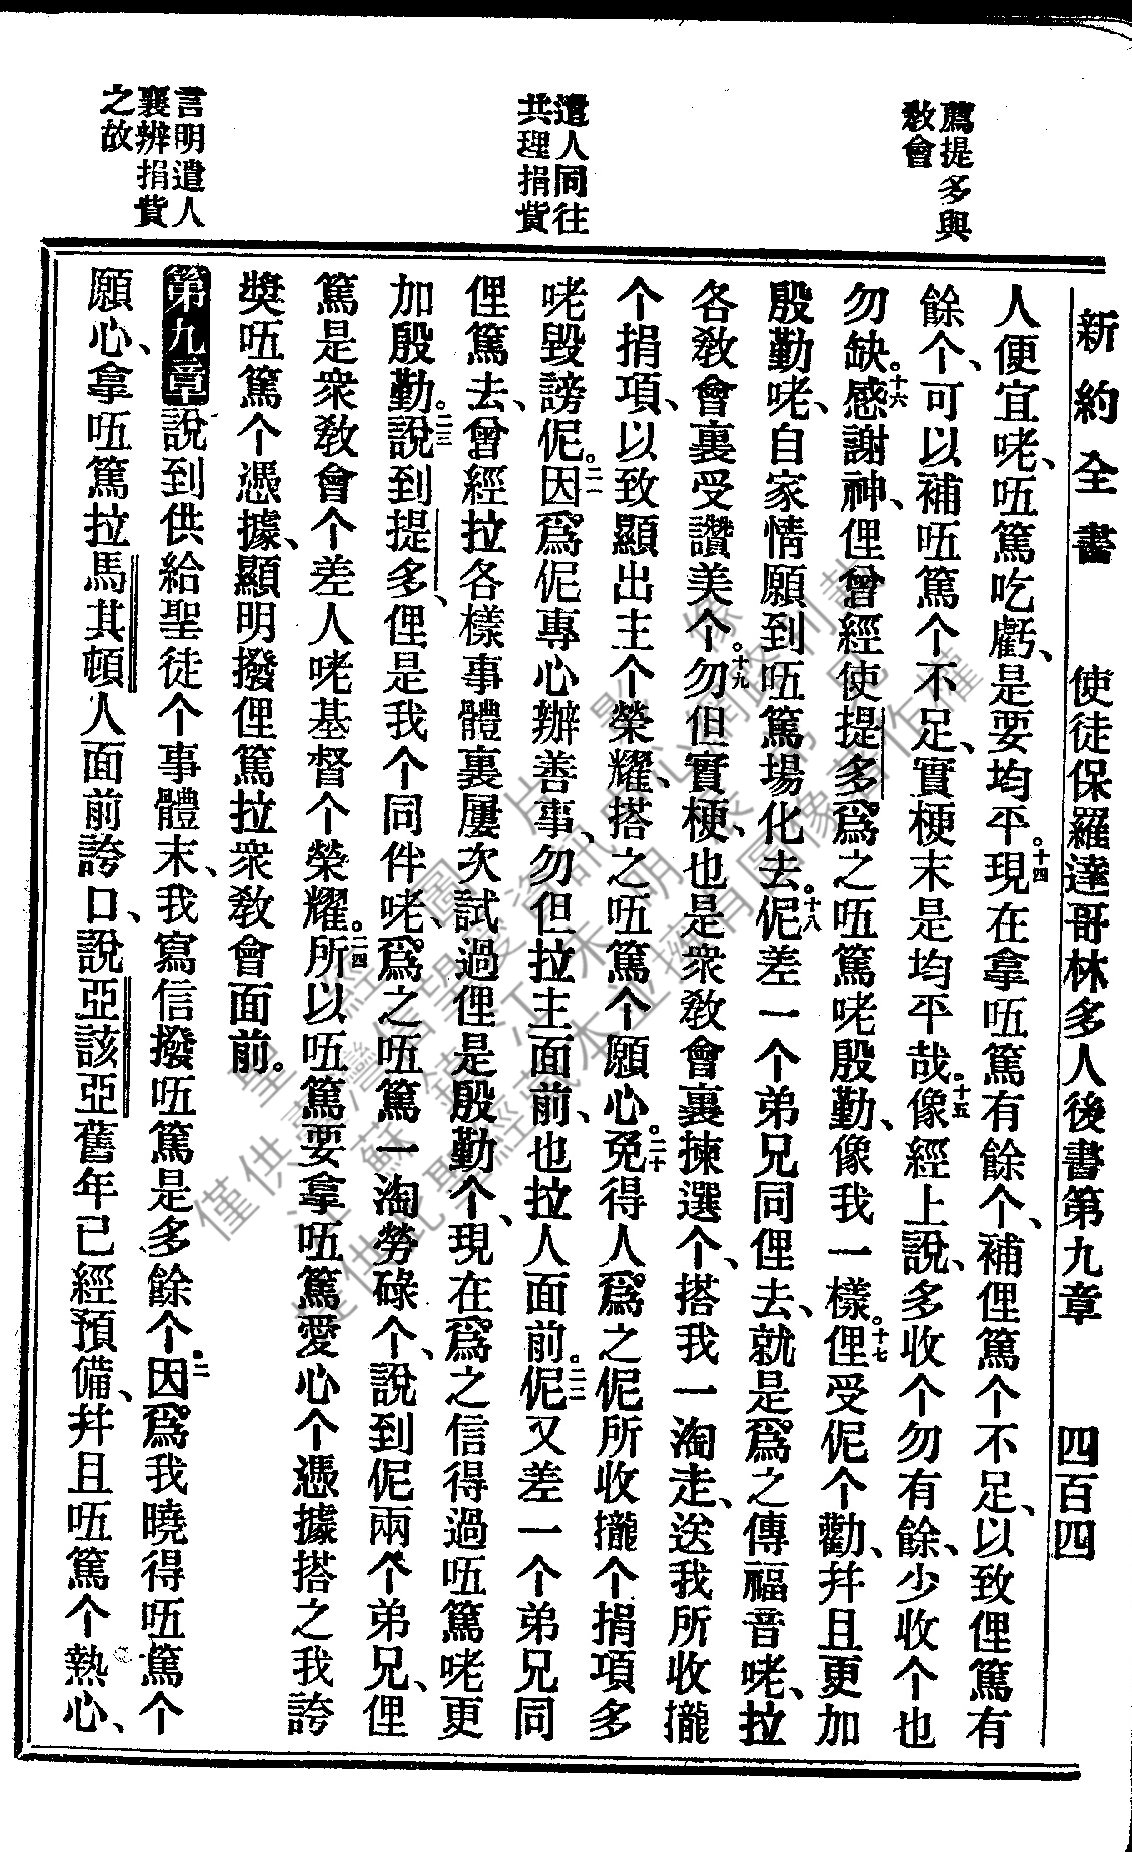 新約全書 使徒保羅達哥林多人後書第九章 四百四
薦提多與
敎會
遣人同往
共理捐貲
言明遣人
襄辦捐貲
之故
人便宜咾、㕶篤吃虧、是要均平。十四現在拿㕶篤有餘个、補俚篤个不足、以致俚篤有
餘个、可以補㕶篤个不足、實梗末是均平哉。十五像經上說、多收个勿有餘、少收个也
勿缺。十六感謝神、俚曾經使提多爲之㕶篤咾殷勤、像我一樣。十七俚受伲个勸、幷且更加
殷勤咾、自家情願到㕶篤塲化去。十八伲差一个弟兄同俚去、就是爲之傳福音咾、拉
各敎會裏受讚美个。十九勿但實梗、也是衆敎會裏揀選个、搭我一淘走、送我所收攏
个捐項、以致顯出主个榮耀、搭之㕶篤个願心。二十免得人爲之伲所收攏个捐項多
咾毀謗伲。二一因爲伲專心辦善事、勿但拉主面前、也拉人面前。二二伲又差一个弟兄同
俚篤去、曾經拉各樣事體裏屢次試過俚是殷勤个、現在爲之信得過㕶篤咾更
加殷勤。二三說到提多、俚是我个同伴咾、爲之㕶篤一淘勞碌个、說到伲兩个弟兄、俚
篤是衆敎會个差人咾基督个榮耀。二四所以㕶篤要拿㕶篤愛心个憑據搭之我誇
獎㕶篤个憑據、顯明撥俚篤拉衆敎會面前。
第九章說到供給聖徒个事體末、我寫信撥㕶篤是多餘个。二因爲我曉得㕶篤个
願心、拿㕶篤拉馬其頓人面前誇口、說亞該亞舊年已經預備、幷且㕶篤个熱心、